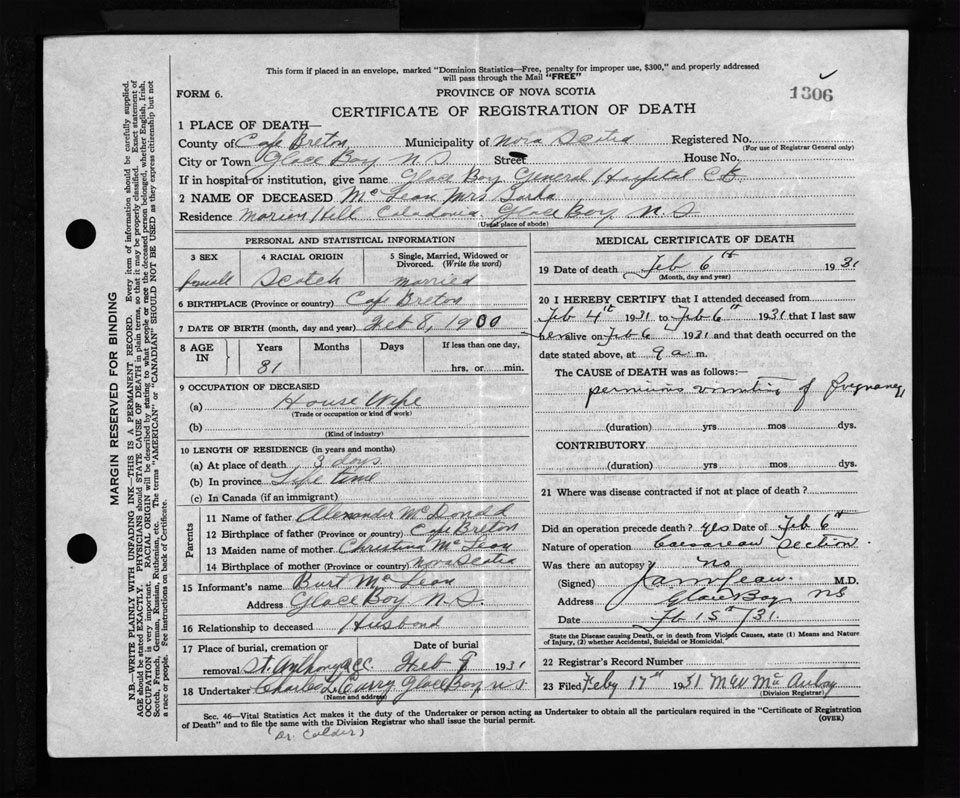 This form if placed in an envelope, marked "Dominion Statistics—Free, penalty for improper use, $300," and properly addressed
will pass through the Mail "FREE"
FORM 6.
PROVINCE OF NOVA SCOTIA
1306
CERTIFICATE OF REGISTRATION OF DEATH
1 PLACE OF DEATH—
County of Cape Breton Municipality of Nova Scotia Registered No.
(For use of Registrar General only)
City or Town Glace Bay N.S Street House No.
If in hospital or institution, give name Glace Bay General Hospital C B
2 NAME OF DECEASED McLean Mrs
Residence Hill Glace Bay N.S
(Usual place of abode)
PERSONAL AND STATISTICAL INFORMATION
3 SEX 4 RACIAL ORIGIN 5 Single, Married, Widowed or Divorced. (Write the word)
Scotch married
6 BIRTHPLACE (Province or country) Cape Breton
7 DATE OF BIRTH (month, day and year) Feb 8, 1900
8 AGE IN Years Months Days If less than one day,
31
hrs. or min.
9 OCCUPATION OF DECEASED
(a) House Wife
(Trade or occupation or kind of work)
(b)
(Kind of industry)
10 LENGTH OF RESIDENCE (in years and months)
(a) At place of death 3 days
(b) In province Life time
(c) In Canada (if an immigrant)
Parents
11 Name of father Alexander McDonald
12 Birthplace of father (Province or country) Cape Breton
13 Maiden name of mother Christina McLean
14 Birthplace of mother (Province or country) Nova Scotia
15 Informant's name Burt McLean
Address Glace Bay N.S.
16 Relationship to deceased Husband
17 Place of burial, cremation or removal Date of burial
St. Feb 1931
18 Undertaker Curry Glace Bay N S
(Name and address)
MEDICAL CERTIFICATE OF DEATH
19 Date of death Feb 6th 1931
(Month, day and year)
20 I HEREBY CERTIFY that I attended deceased from
Feb 4th 1931 to Feb 6th 1931 that I last saw
her alive on Feb 6 1931 and that death occurred on the
date stated above, at 9 a. m.
The CAUSE of DEATH was as follows:—
pernicious vomiting of pregnancy
(duration) yrs mos dys.
CONTRIBUTORY
(duration) yrs mos dys.
21 Where was disease contracted if not at place of death?
Did an operation precede death? yes Date of Feb 6th
Nature of operation Caesarean Section.
Was there an autopsy no
(Signed) M.D.
Address Glace Bay NS
Date Feb 15th/31.
State the Disease causing Death, or in death from Violent Causes, state (1) Means and Nature
of Injury, (2) whether Accidental, Suicidal or Homicidal.
22 Registrar's Record Number
23 Filed Feby 17th 1931
(Division Registrar)
Sec. 46—Vital Statistics Act makes it the duty of the Undertaker or person acting as Undertaker to obtain all the particulars required in the "Certificate of Registration
of Death" and to file the same with the Division Registrar who shall issue the burial permit.
(OVER)
(Dr. Calder)
MARGIN RESERVED FOR BINDING
N.B. WRITE PLAINLY WITH UNFADING INK—THIS IS A PERMANENT RECORD. Every item of information should be carefully supplied.
AGE should be stated EXACTLY. PHYSICIANS should STATE CAUSE OF DEATH in plain terms, so that it may be properly classified. Exact statement of
OCCUPATION is very important. RACIAL ORIGIN will be described by stating to what people or race the deceased person belonged, whether English, Irish,
Scotch, French, German, Russian, Ruthenian, etc. The terms "AMERICAN" or "CANADIAN" SHOULD NOT BE USED as they express citizenship but not
a race or people. See instructions on back of Certificate.